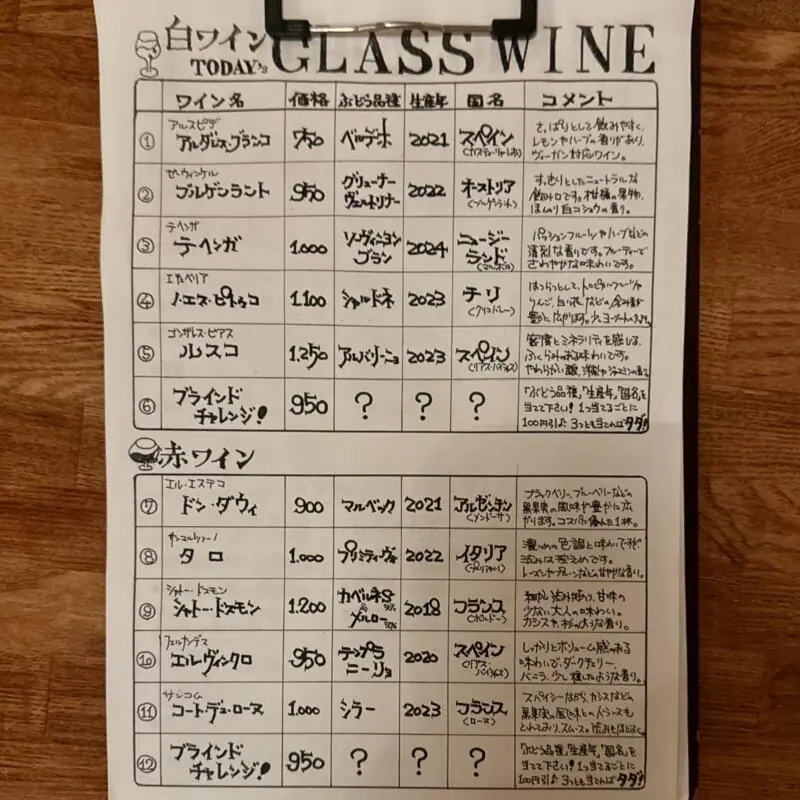 白ワイン
TODAY's GLASS WINE
ワイン名 価格 ぶどう品種 生産年 国名 コメント
① アルスピデ
アルダレス・ブランコ 750 ベルデホ 2021 スペイン
さっぱりとして飲みやすく、
レモンやハーブの香りがあり、
ヴィーガン対応ワイン。
② ゼーヴィンケル
ブルゲンラント 950 グリューナー
ヴェルトリナー 2022 オーストリア
(ブルゲンラント)
すっきりとしたニュートラルな
飲み口です。柑橘の果物、
ほんのり白コショウの香り。
③ テヘンガ
テヘンガ 1.000 ソーヴィニヨン
ブラン 2024 ニュージー
ランド
(マルボロ)
パッションフルーツやハーブなどの
清烈な香りです。フルーティーで
さわやかな味わいです。
④
ノ・エス・ピトゥコ 1.100 シャルドネ 2023 チリ
(クリコバレー)
はつらつとして、トロピカルフルーツや
りんご、白い花などの
豊かに広がります。
⑤ ゴンザレス・ビアス
ルスコ 1.250 アルバリーニョ 2023 スペイン
(リアス・バイシャス)
密度とミネラリティを感じる、
ふくらみのある味わいです。
やわらかい酸、
⑥ ブラインド
チャレンジ! 950 ? ? ?
「ぶどう品種」「生産年」「国名」を
当てて下さい! 1つ当てるごとに
100円引♪ 3つとも当てれば タダ!
赤ワイン
⑦ エル・エステコ
ドン・ダヴィ 900 マルベック 2021 アルゼンチン
(メンドーサ)
ブラックベリー、ブルーベリーなどの
黒果実の風味が豊かに広
がります。コスパに優れた1杯。
⑧ サンマルツァーノ
タロ 1.000 プリミティーヴォ 2022 イタリア
(プーリア)
濃いめの色調と味わいですが、
渋みは控えめです。
レーズンやプルーンなどの甘やかな香り。
⑨ シャトー・ドスモン
シャトー・ドスモン 1.200 カベルネS
&
メルロー 2018 フランス
(ボルドー)
和やかな渋味あり、甘味の
少ない大人の味わい。
カシスや、杉のような香り。
⑩ フェルナンデス
エルヴィンクロ 950 テンプラ
ニーリョ 2020 スペイン
(リアス・バイシャス)
しっかりとボリューム感のある
味わいで、ダークチェリー、
バニラ、少し燻したような香り。
⑪ サンコム
コート・デュ・ローヌ 1.000 シラー 2023 フランス
(ローヌ)
スパイシーながら、カシスなどの
黒果実の風味とのバランスも
とれており、スムース。渋みもほどよく。
⑫ ブラインド
チャレンジ! 950 ? ? ?
「ぶどう品種」「生産年」「国名」を
当てて下さい! 1つ当てるごとに
100円引♪ 3つとも当てれば タダ!